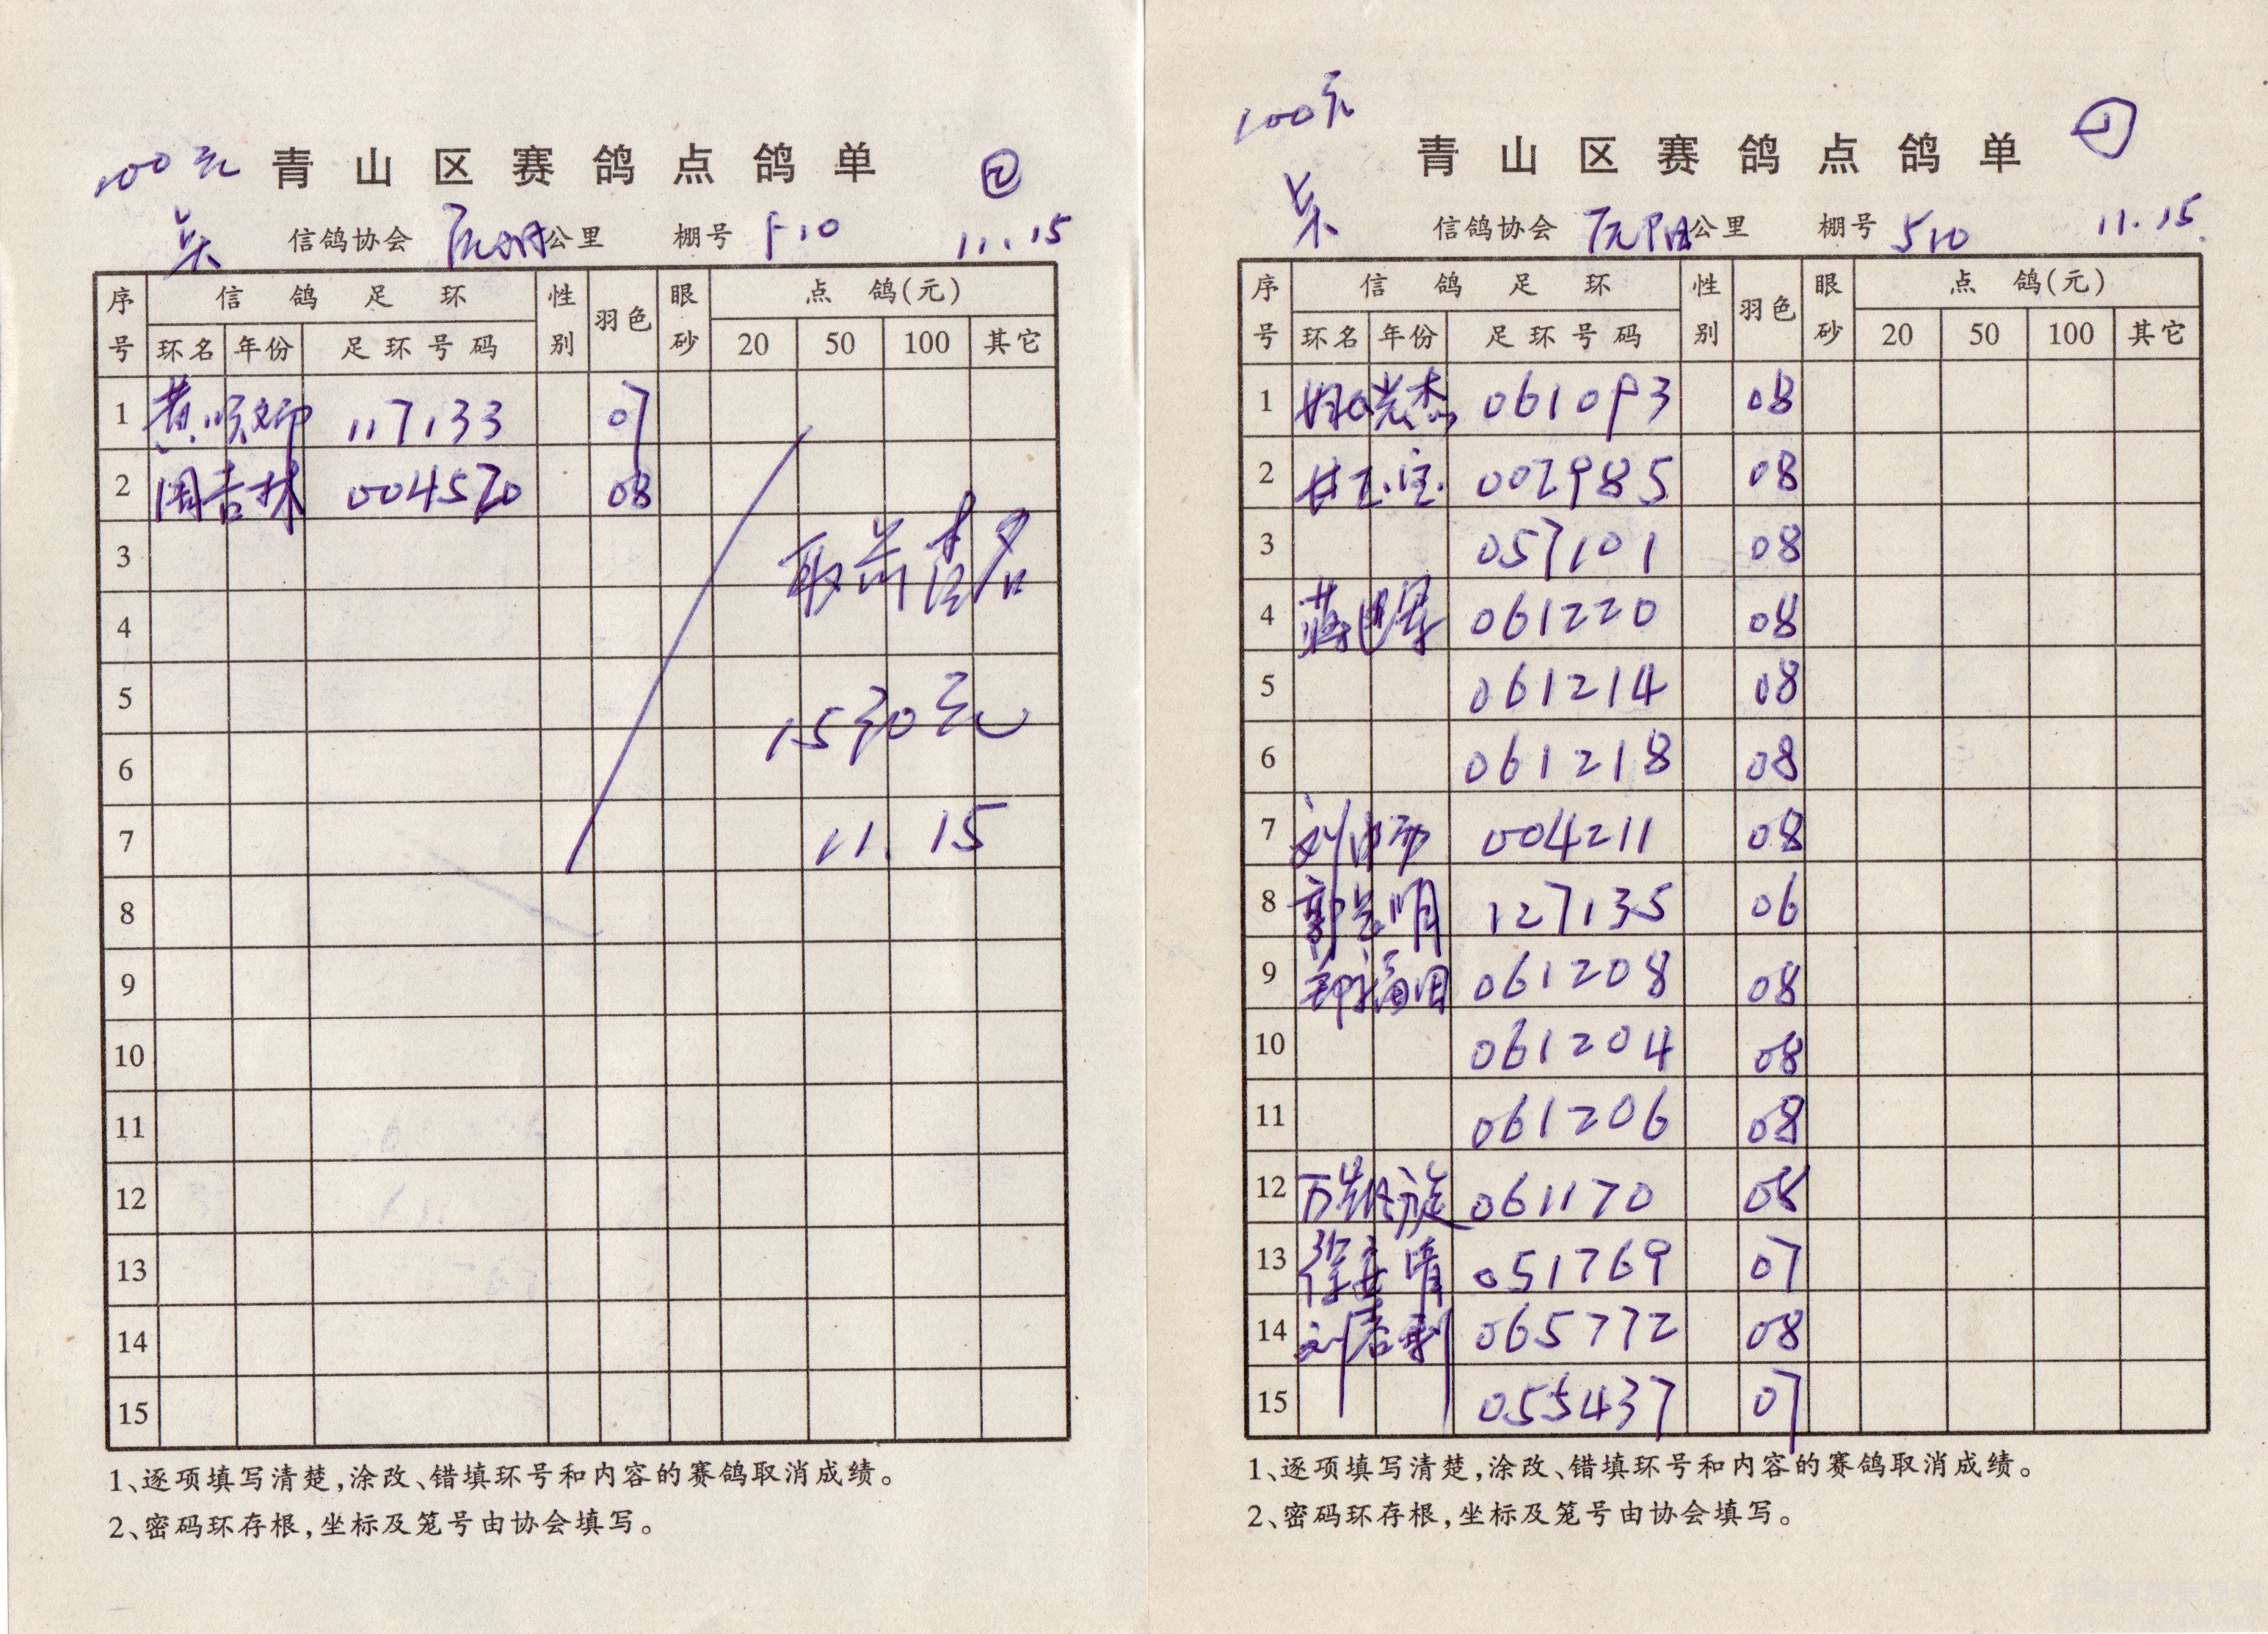 100元 青山区赛鸽点鸽单
信鸽协会 公里 棚号 510 11.15
序号 信鸽足环 性别 羽色 眼砂 点鸽(元)
环名 年份 足环号码 20 50 100 其它
1 117133 07
2 周吉林 004570 08
3
4
5
6
7
取前
元
11.15
8
9
10
11
12
13
14
15
1、逐项填写清楚,涂改、错填环号和内容的赛鸽取消成绩。
2、密码环存根,坐标及笼号由协会填写。
100元
青山区赛鸽点鸽单
信鸽协会 公里 棚号 510 11.15
序号 信鸽足环 性别 羽色 眼砂 点鸽(元)
环名 年份 足环号码 20 50 100 其它
1 061093 08
2 002985 08
3 057101 08
4 061220 08
5 061214 08
6 061218 08
7 004211 08
8 127135 06
9 郑福田 061208 08
10 061204 08
11 061206 08
12 061170 08
13 051769 07
14 065772 08
15 055437 07
1、逐项填写清楚,涂改、错填环号和内容的赛鸽取消成绩。
2、密码环存根,坐标及笼号由协会填写。